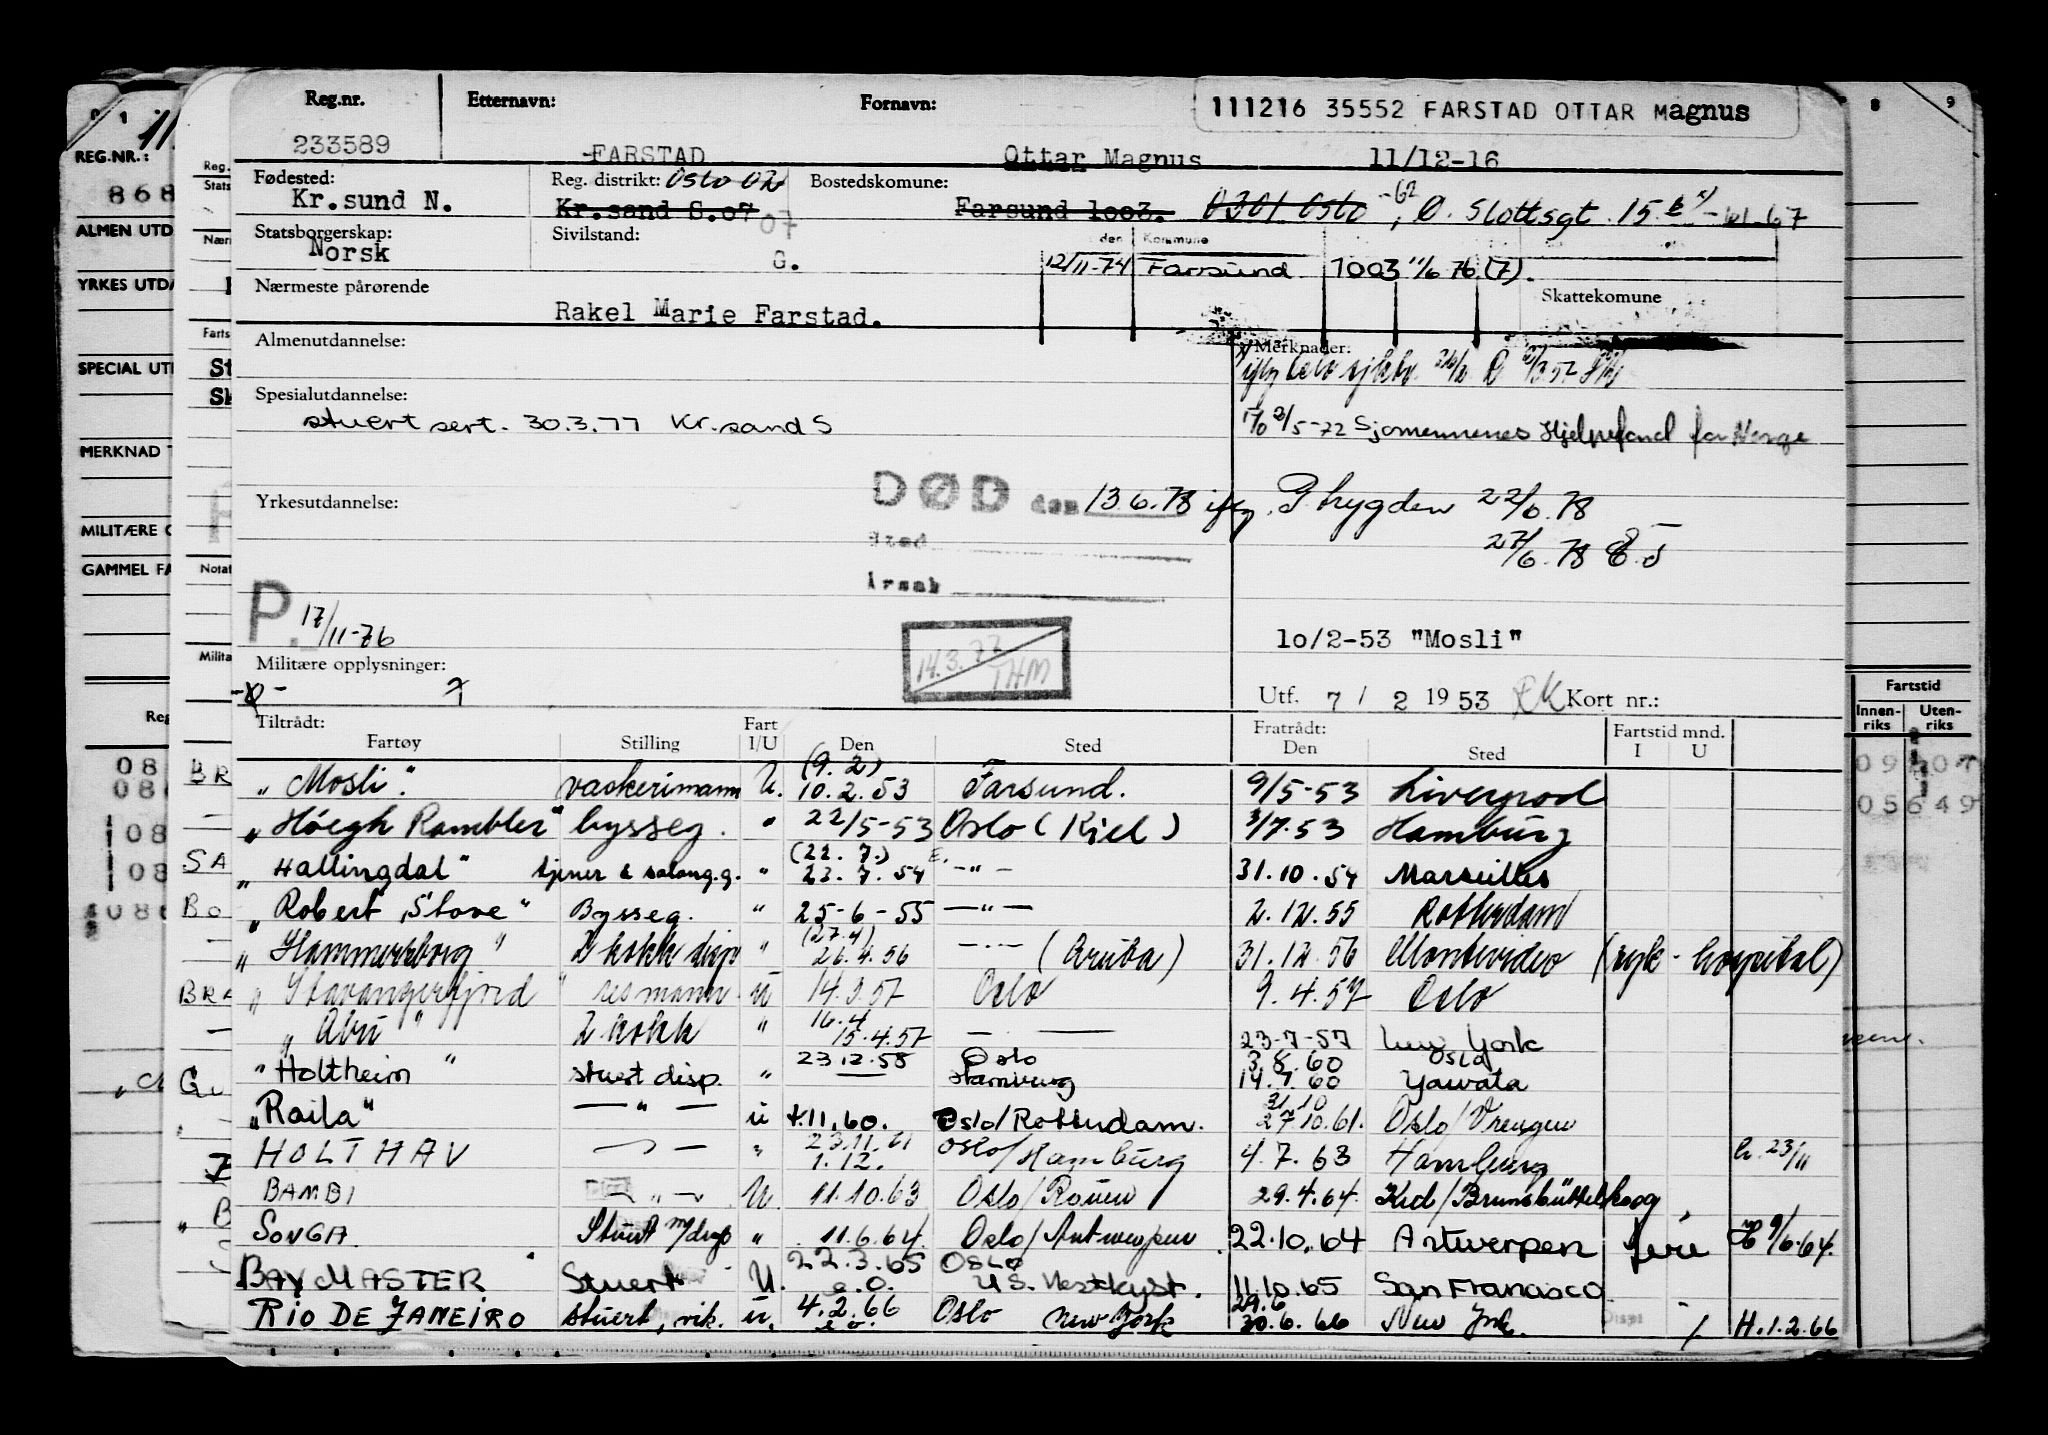 Reg.nr. Etternavn: Fornavn: 111216 35552 FARSTAD OTTAR Magnus
233589 FARSTAD Ottar Magnus 11/12-16
Fødested: Reg. distrikt: Oslo 02 Bostedskomune:
Kr.sund N. Kr.sand S.07 07 Farsund 1003. 0301 Oslo -62, Ø. Slottsgt. 15.b x) -67
Statsborgerskap: Sivilstand: den Kommune
Norsk G. 12/11-74 Farsund 1003 11/6 76 (7).
Nærmeste pårørende Skattekomune
Rakel Marie Farstad.
Almenutdannelse: Merknader:
Spesialutdannelse:
stuert sert. 30.3.77 Kr.sand S 2/5-72 Sjømennenes Hjelpefond for Norge
Yrkesutdannelse: DØD den 13.6.78 iflg. P trygden 22/6.78
Sted 27/6.78
Årsak
P. 17/11-76
14.3.77 THM 10/2-53 "Mosli"
Militære opplysninger:
Utf. 7 / 2 1953 Kort nr.:
Tiltrådt: Fart Fratrådt: Fartstid mnd.
Fartøy Stilling I/U Den Sted Den Sted I U
"Mosli". vaskerimann U. (9.2) 10.2.53 Farsund. 9/5-53 Liverpool
"Höegh Rambler" bysseg. " 22/5-53 Oslo (Kiel) 3/7.53 Hamburg
"Hallingdal" tjener & salong.g. " (22.7.) 23.7.54 -"- 31.10.54 Marseilles
"Robert Stove" Bysseg. " 25-6-55 -"- 2.12.55 Rotterdam
"Hammersborg" 2 kokk disp " (27.4) 26.4.56 -"- (Aruba) 31.12.56 Montevideo (syk-hospital)
"Stavangerfjord" resmann ü 14.3.57 Oslo 9.4.57 Oslo
"Abu" 2 kokk " 16.4 15.4.57 - 23-7-57 New York
"Holtheim" stuert disp. " 23.12.58 Oslo Hamburg 3.8.60 14.7.60 Oslo Yawata
"Raila" -"- ü 4.11.60. Oslo/Rotterdam. 31.10 27.10.61. Oslo/Vrengen
HOLTHAV " 23.11.61 1.12. Oslo/Hamburg 4.7.63 Hamburg h. 23/11
BAMBI -"- U. 11.10.63 Oslo/Rouen 29.4.64. Kiel/Brunsbüttelkoog
SONGA Stuert m/disp " 11.6.64. Oslo/Antwerpen 22.10.64 Antwerpen ferie 9/6.64.
BAY MASTER Stuert U. 22.3.65 e.o. OSLO U.S. Vestkyst. 11.10.65 San Francisco
RIO DE JANEIRO stuert, vik. ü. 4.2.66 e.o. Oslo New York 29.6 30.6.66 New York. H.1.2.66
REG.NR.:
868
ALMEN UTD
YRKES UTDA
SPECIAL UT
MERKNAD
MILITÆRE O
GAMMEL FA
Fartstid
Innen-riks Uten-riks